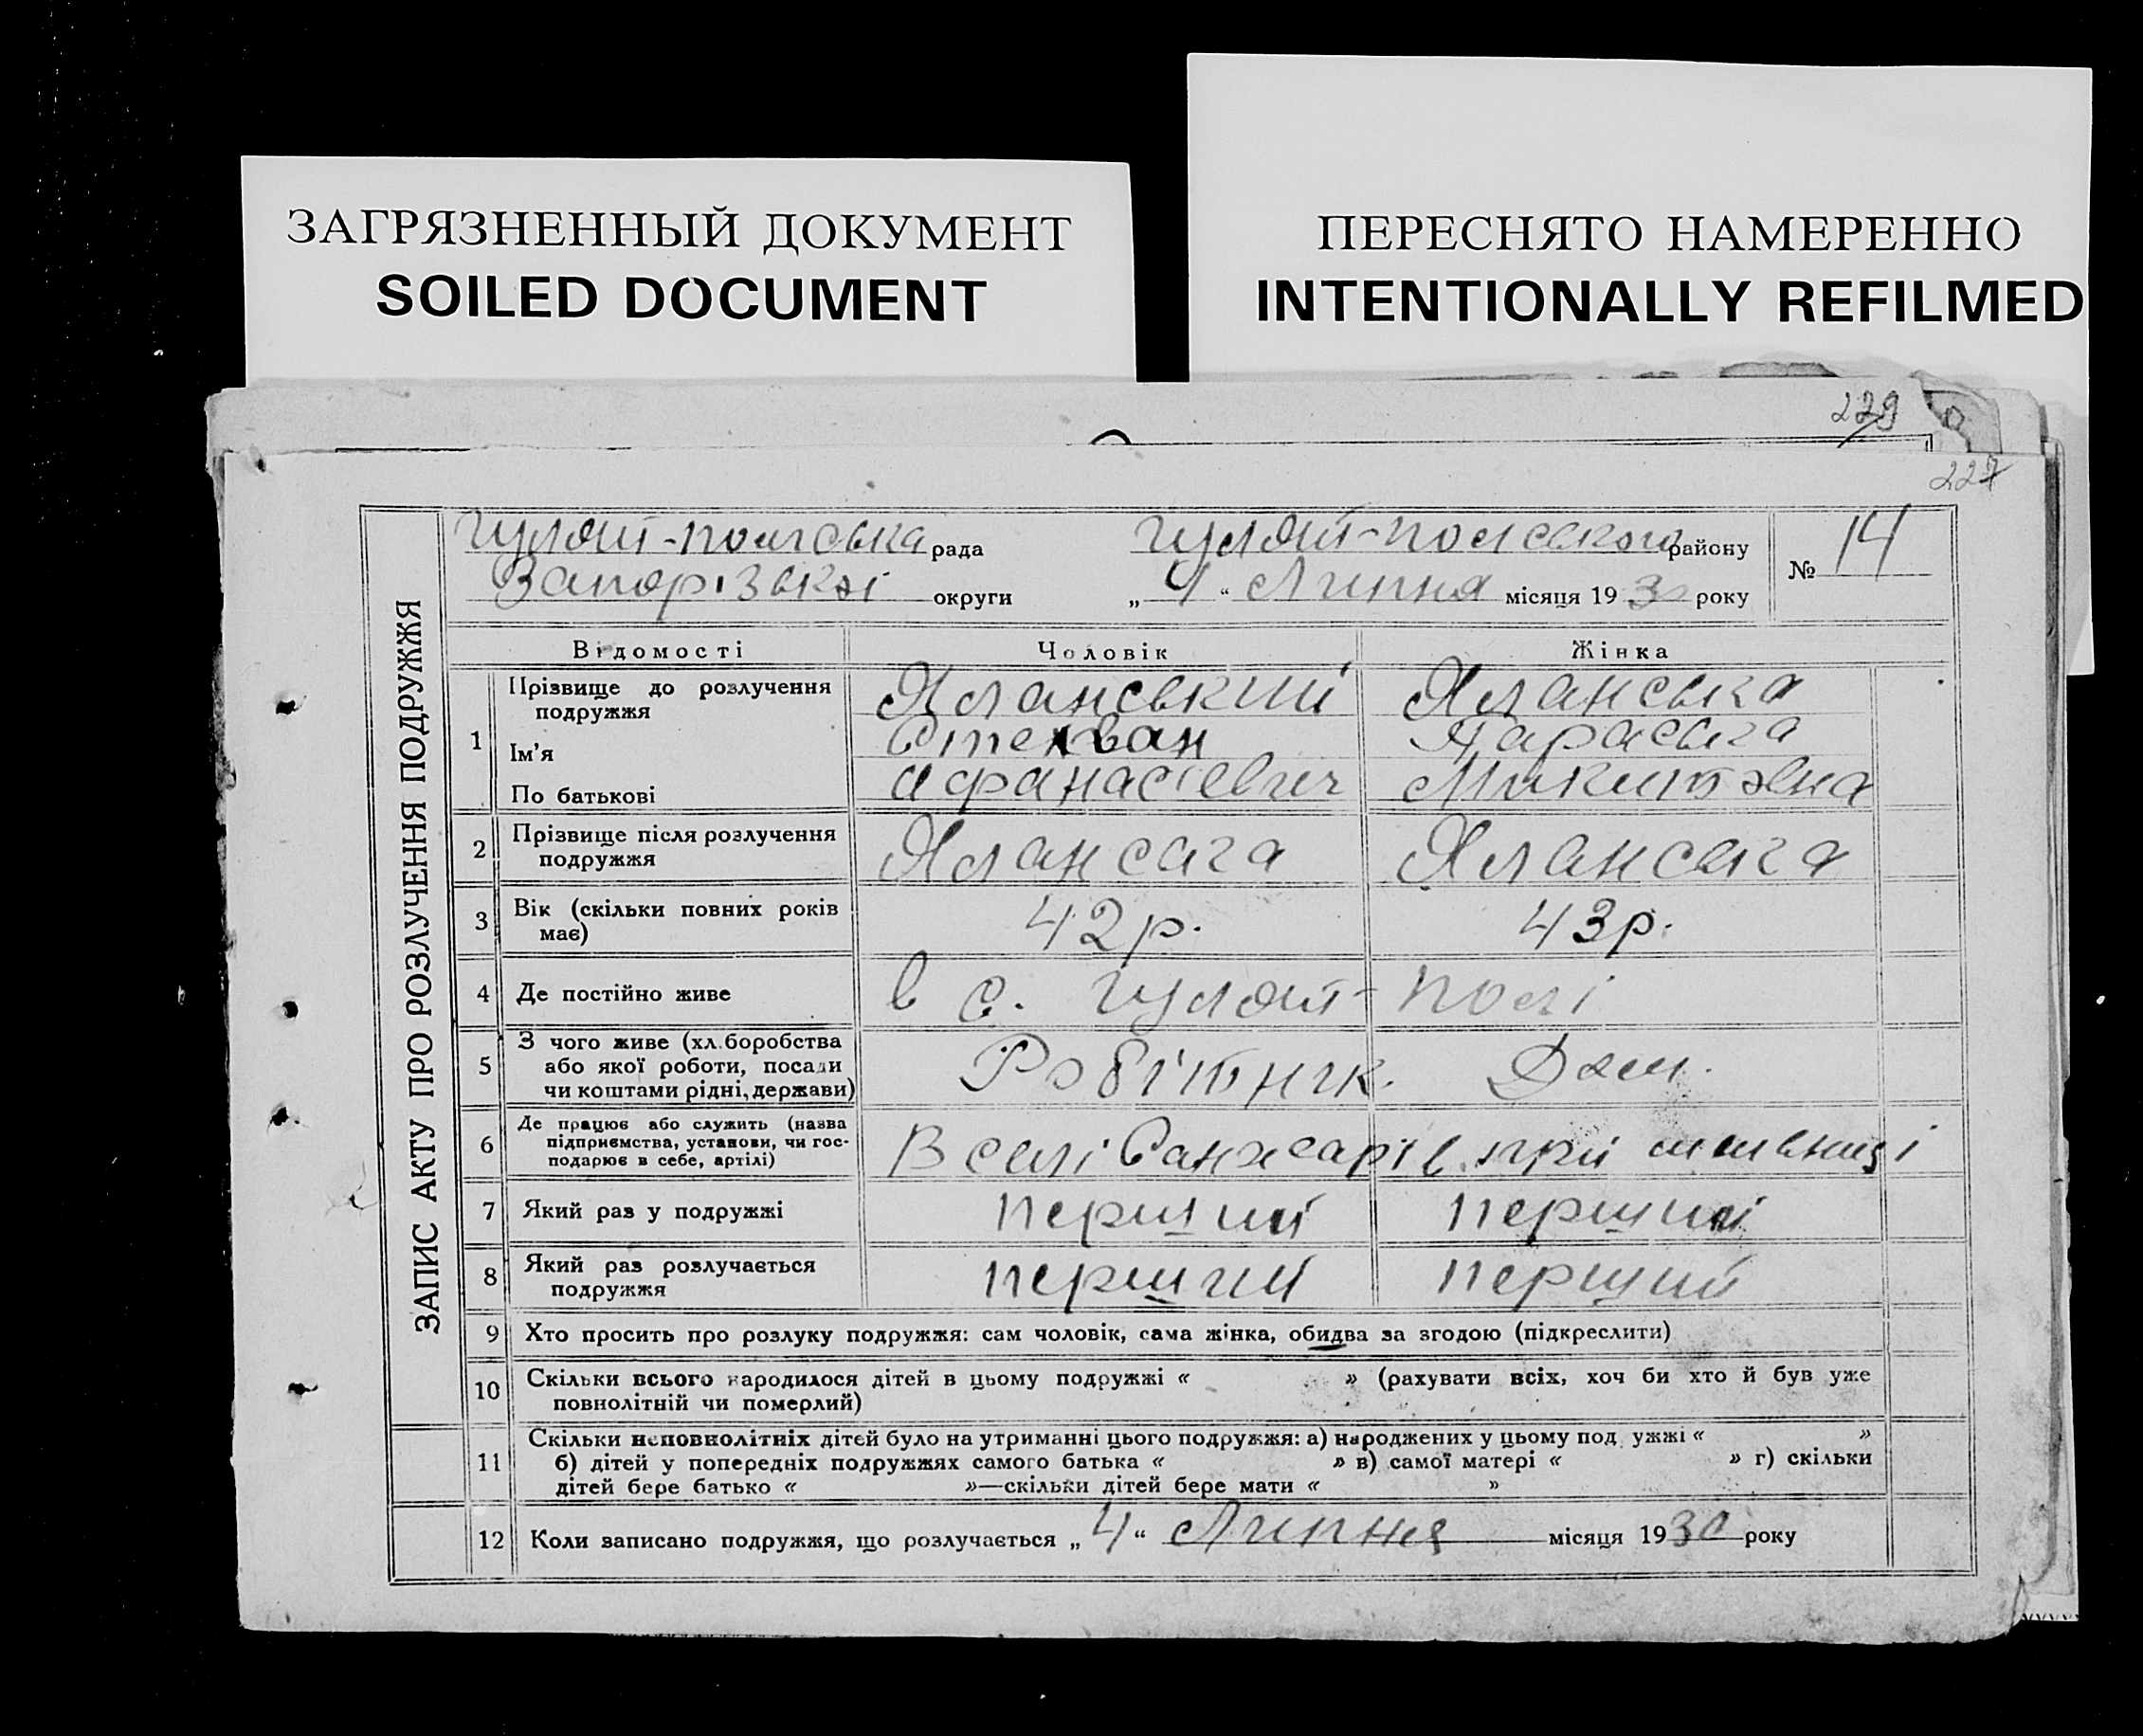 ЗАГРЯЗНЕННЫЙ ДОКУМЕНТ
SOILED DOCUMENT
ПЕРЕСНЯТО НАМЕРЕННО
INTENTIONALLY REFILMED
229
227
ЗАПИС АКТУ ПРО РОЗЛУЧЕННЯ ПОДРУЖЖЯ
Гуляй-польська рада Гуляй-польського району № 14
Запорізької округи „4“ Липня місяця 1930 року
Відомості Чоловік Жінка
1 Прізвище до розлучення подружжя Яланський Яланська
Ім'я Степан Параська
По батькові Афанасієвич Микитовна
2 Прізвище після розлучення подружжя Яланська Яланська
3 Вік (скільки повних років має) 42 р. 43 р.
4 Де постійно живе в с. Гуляй-Полі
5 З чого живе (хл.боробства або якої роботи, посади чи коштами рідні, держави) Робітник. Дом.
6 Де працює або служить (назва підприємства, установи, чи господарює в себе, артілі) В селі при
7 Який раз у подружжі перший перший
8 Який раз розлучається подружжя перший перший
9 Хто просить про розлуку подружжя: сам чоловік, сама жінка, обидва за згодою (підкреслити)
10 Скільки всього народилося дітей в цьому подружжі « » (рахувати всіх, хоч би хто й був уже
повнолітній чи померлий)
11 Скільки неповнолітніх дітей було на утриманні цього подружжя: а) народжених у цьому под ужжі « »
б) дітей у попередніх подружжях самого батька « » в) самої матері « » г) скільки
дітей бере батько « »—скільки дітей бере мати « »
12 Коли записано подружжя, що розлучається „4“ Липня місяця 1930 року